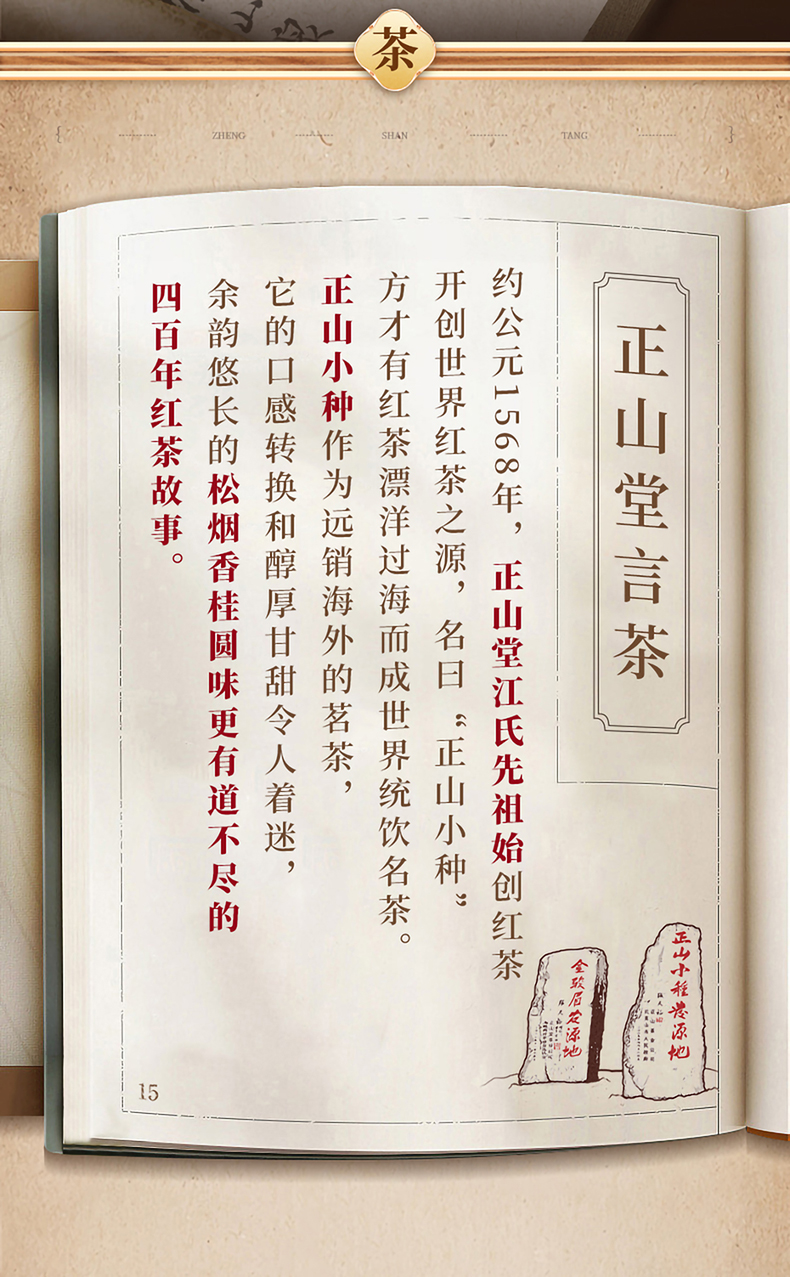 茶
ZHENG SHAN TANG
正山堂言茶
约公元1568年，正山堂江氏先祖始创红茶
开创世界红茶之源，名曰“正山小种”
方才有红茶漂洋过海而成世界统饮名茶。
正山小种作为远销海外的茗茶，
它的口感转换和醇厚甘甜令人着迷，
余韵悠长的松烟香桂圆味更有道不尽的
四百年红茶故事。
正山小種发源地
金骏眉发源地
15